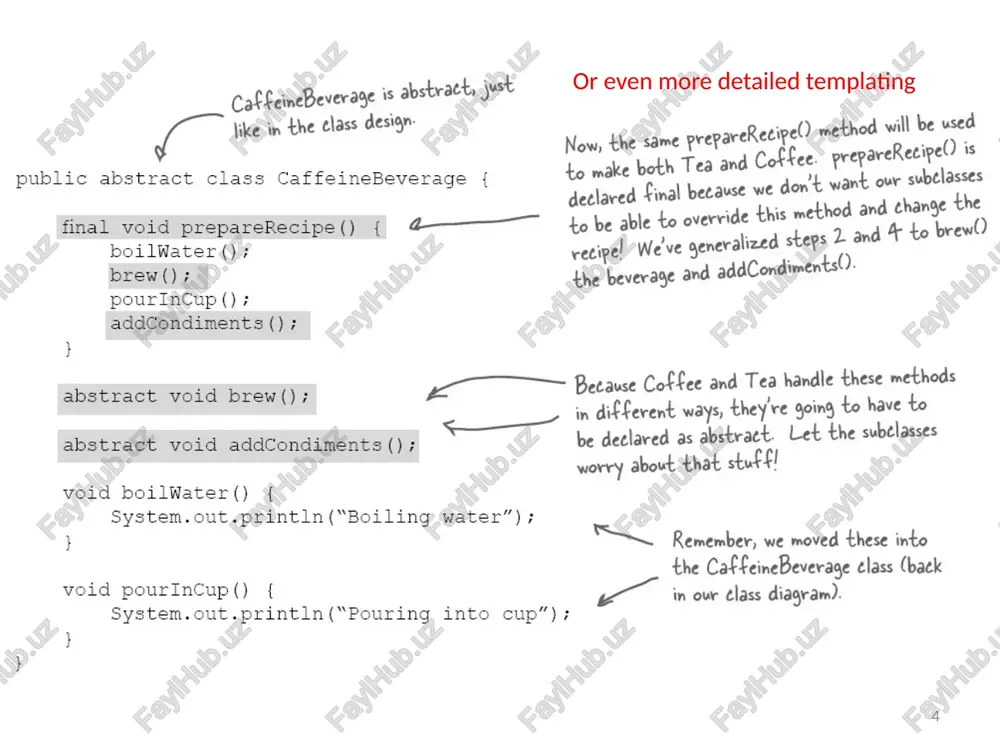 Or even more detailed templating
CaffeineBeverage is abstract, just
like in the class design.
public abstract class CaffeineBeverage {
final void prepareRecipe() {
boilWater();
brew();
pourInCup();
addCondiments();
}
abstract void brew();
abstract void addCondiments();
void boilWater() {
System.out.println(“Boiling water”);
}
void pourInCup() {
System.out.println(“Pouring into cup”);
}
}
Now, the same prepareRecipe() method will be used
to make both Tea and Coffee. prepareRecipe() is
declared final because we don’t want our subclasses
to be able to override this method and change the
recipe! We’ve generalized steps 2 and 4 to brew()
the beverage and addCondiments().
Because Coffee and Tea handle these methods
in different ways, they’re going to have to
be declared as abstract. Let the subclasses
worry about that stuff!
Remember, we moved these into
the CaffeineBeverage class (back
in our class diagram).
4
FaylHub.uz